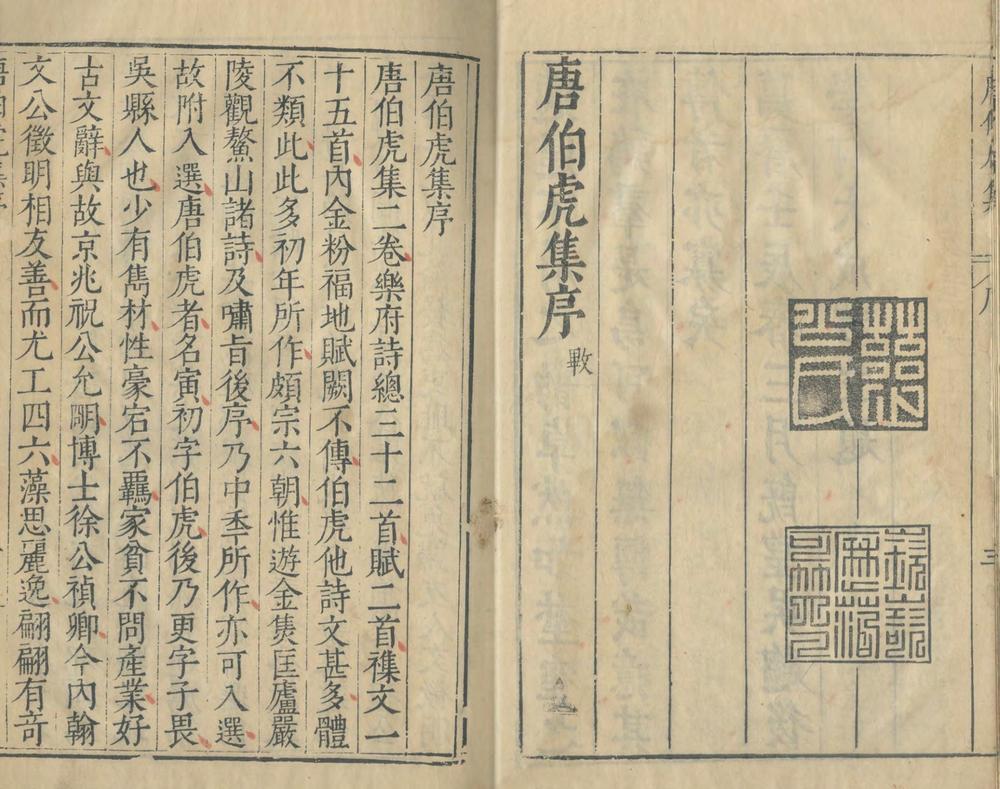 唐伯虎集
序
三
唐伯虎集序
唐伯虎集序
唐伯虎集二卷樂府詩總三十二首賦二首襍文一
十五首內金粉福地賦闕不傳伯虎他詩文甚多體
不類此此多初年所作頗宗六朝惟遊金焦匡廬嚴
陵觀鰲山諸詩及嘯旨後序乃中秊所作亦可入選
故附入選唐伯虎者名寅初字伯虎後乃更字子畏
吳縣人也少有雋材性豪宕不羈家貧不問產業好
古文辭與故京兆祝公允朙博士徐公禎卿今內翰
文公徵明相友善而尤工四六藻思麗逸翩翩有竒
唐伯虎集序